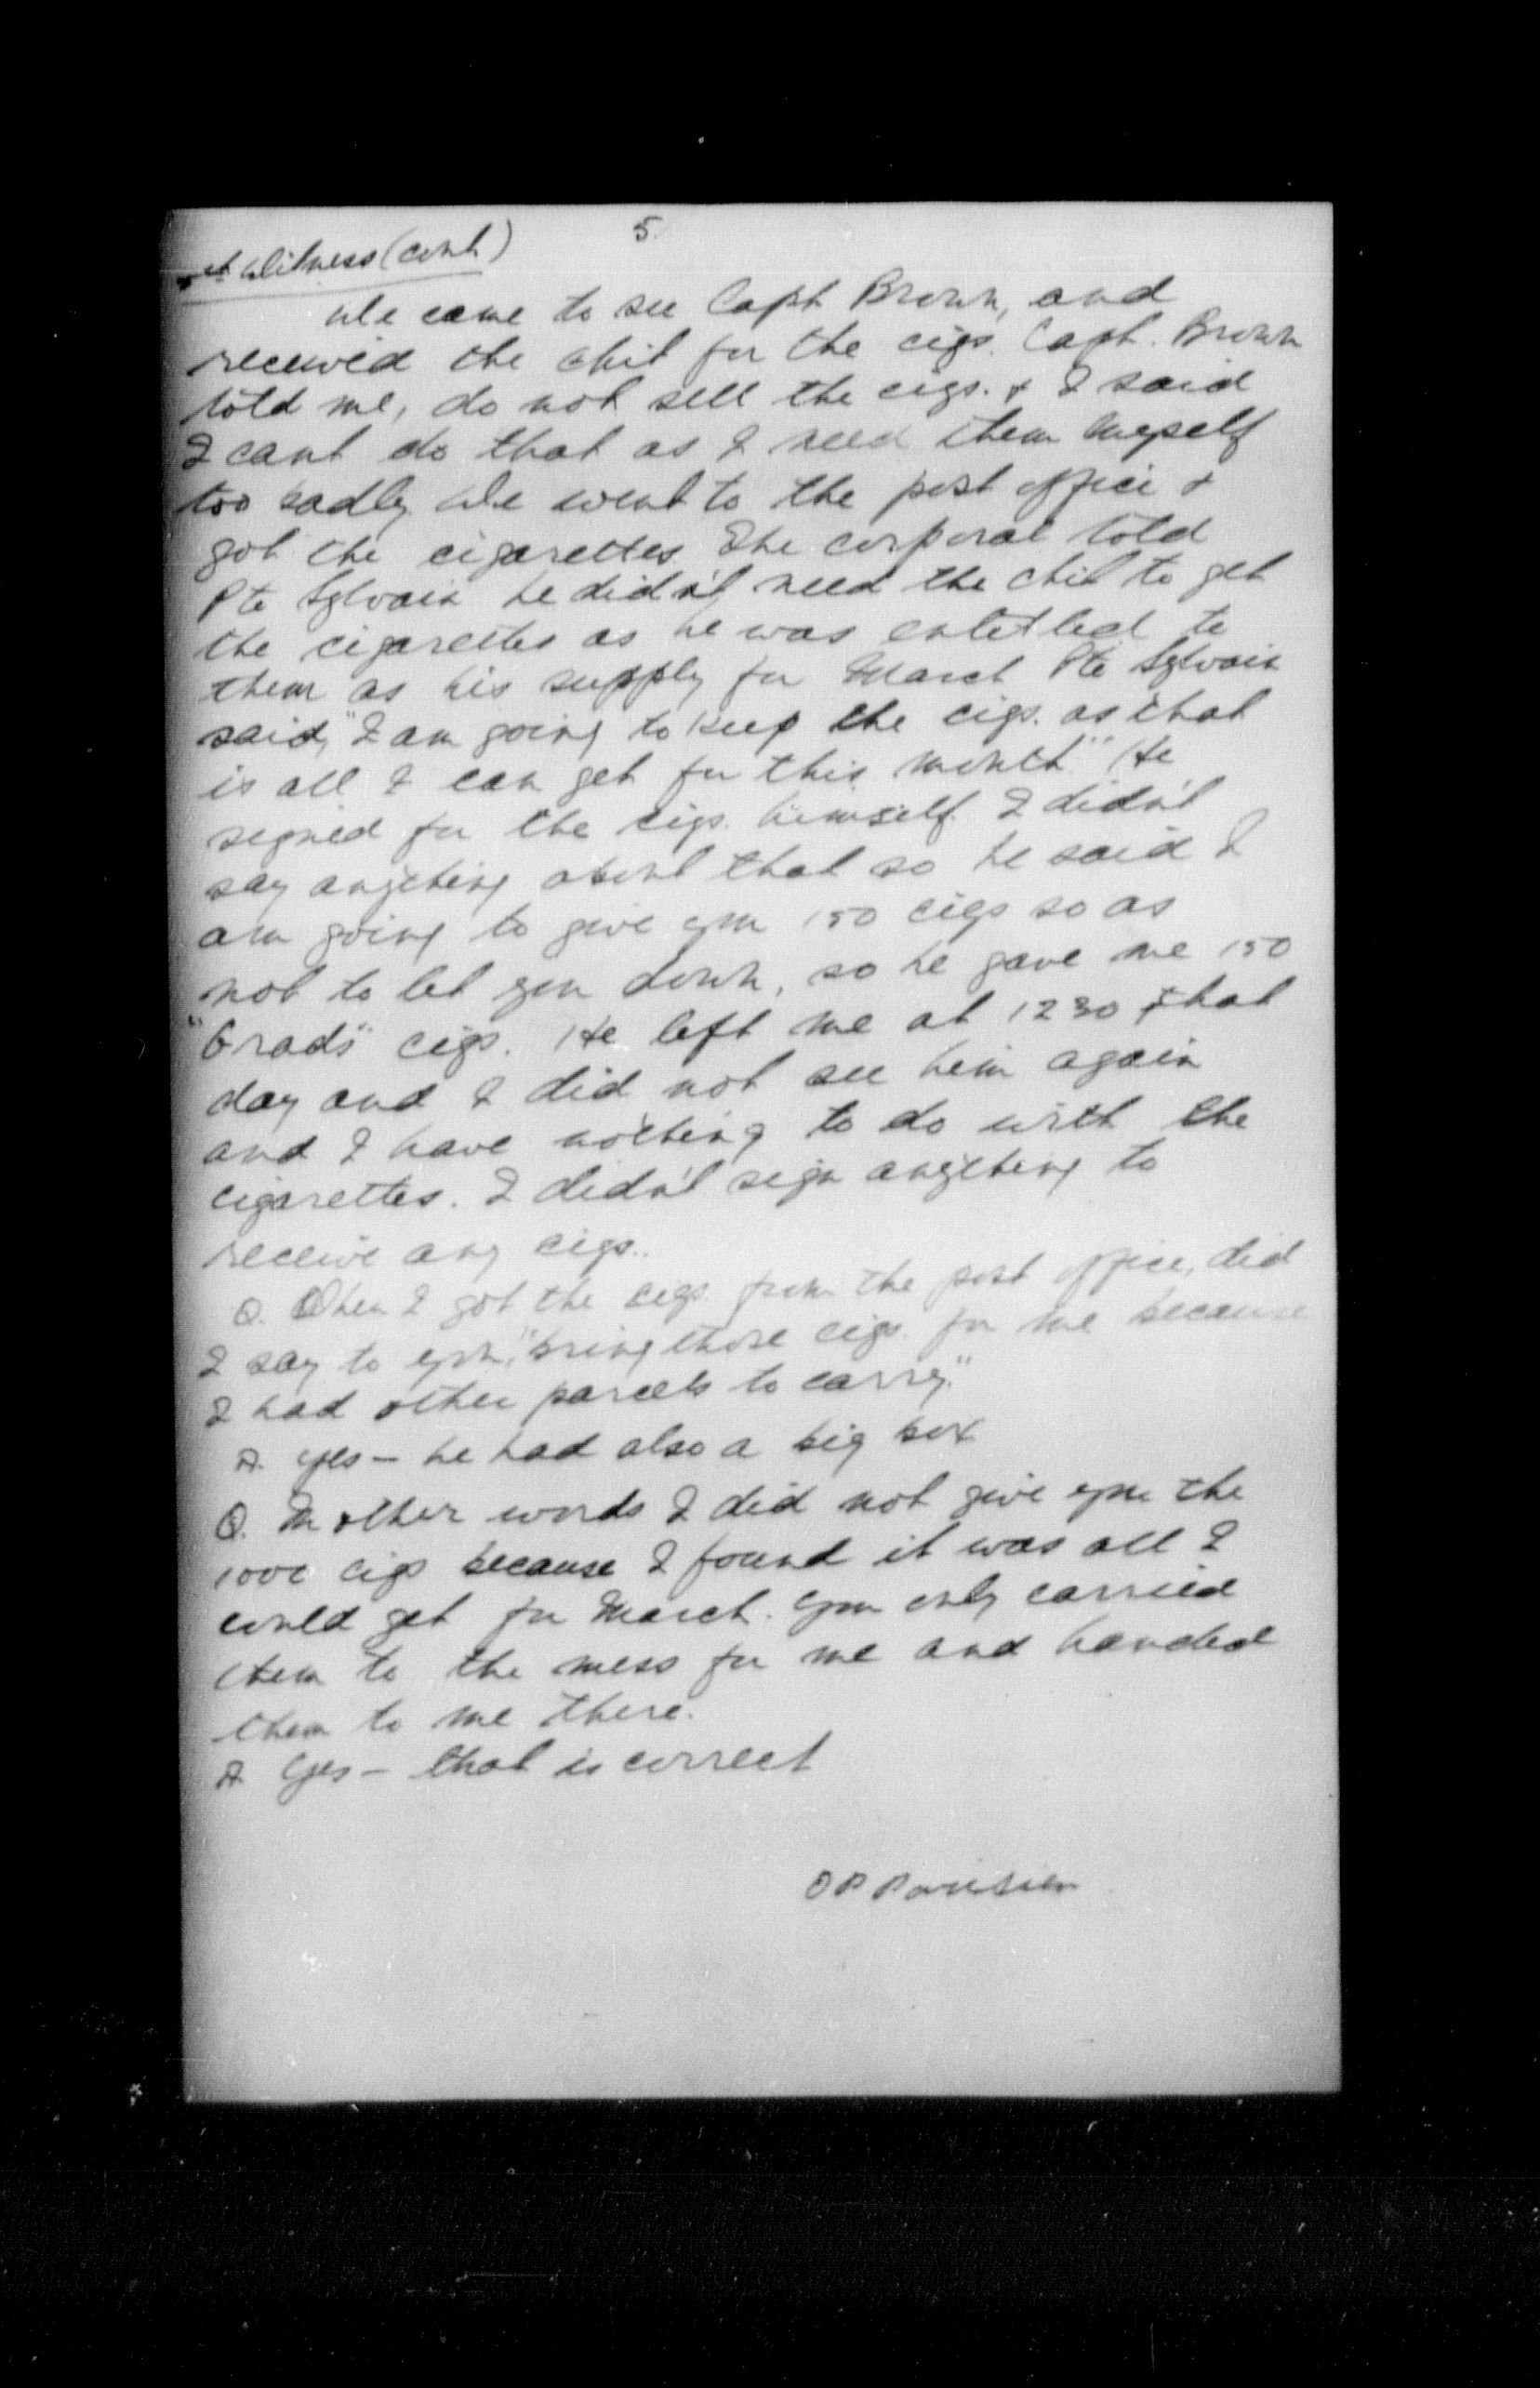 5.
Witness (cont)
We came to see Capt Brown, and
received the chit for the cigs. Capt. Brown
told me, do not sell the cigs. + I said
I cant do that as I need them myself
too badly. We went to the post office +
got the cigarettes. The corporal told
Pte Sylvain he didn't need the chit to get
the cigarettes as he was entitled to
them as his supply for March. Pte Sylvain
said, "I am going to keep the cigs. as that
is all I can get for this month" He
signed for the cigs. himself. I didn't
say anything about that so he said I
am going to give you 150 cigs so as
not to let you down, so he gave me 150
"Grads" cigs. He left me at 1230 that
day and I did not see him again
and I have nothing to do with the
cigarettes. I didn't sign anything to
receive any cigs.
Q. When I got the cigs. from the post office, did
I say to you, "bring those cigs. for me because
I had other parcels to carry."
A. Yes – he had also a big box
Q. In other words I did not give you the
1000 cigs because I found it was all I
could get for March. You only carried
them to the mess for me and handed
them to me there.
A. Yes – that is correct